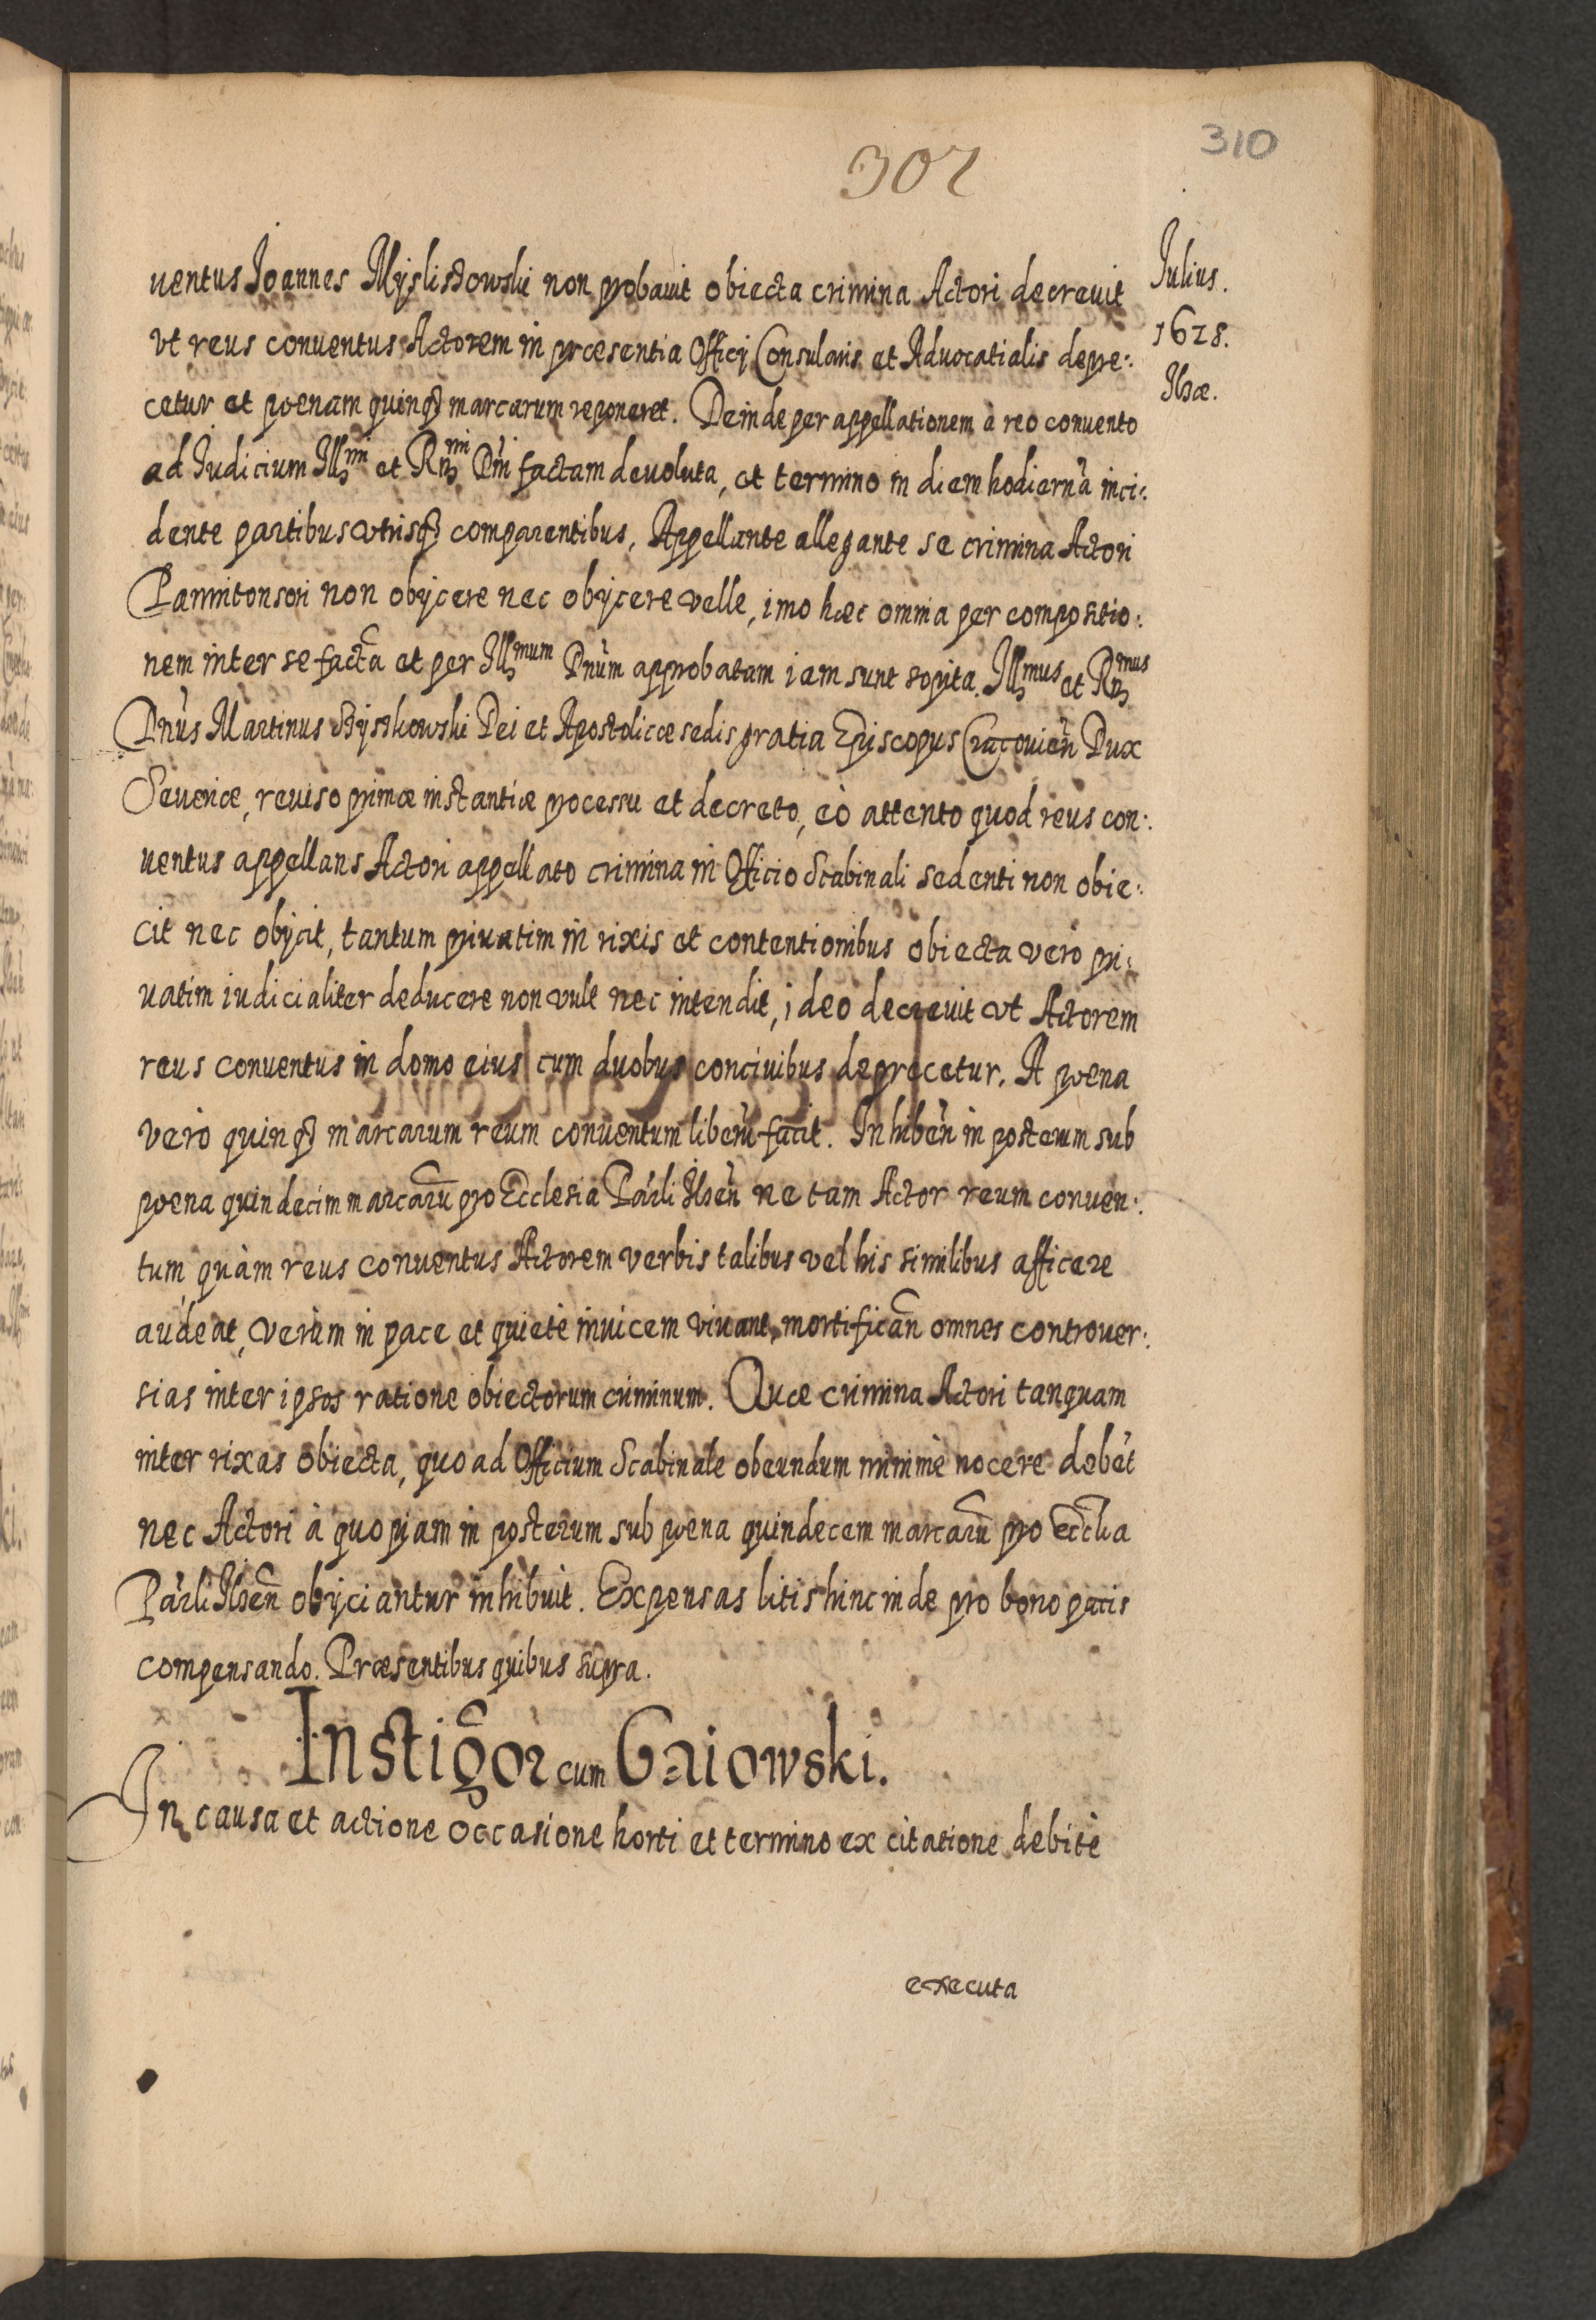 310
302
Iulius.
1628.
Ilzæ.
uentus Ioannes Myslissowski non probauit obiecta crimina Actori decreuit
vt reus conuentus Actorem in præsentia Officij Consularis et Aduocatialis depre:
cetur et pœnam quinqꝫ marcarum reponeret. Deinde per appellationem à reo conuento
ad Iudicium Illmi et Rmi Dni factam deuoluta, et termino in diem hodiernã inci:
dente partibus vtrisqꝫ comparentibus, Appellante allegante se crimina Actori
Pannitonsori non obijcere nec obijcere velle, imo hæc omnia per compositio:
nem inter se factã et per Illmum Dnum approbatam iam sunt sopita. Illmus et Rmus
Dnus Martinus Szyszkowski Dei et Apostolicæ sedis gratia Episcopus Cracouien Dux
Seueriæ, reuiso primæ instantiæ processu et decreto, eò attento quod reus con:
uentus appellans Actori appellato crimina in Officio Scabinali sedenti non obie:
cit nec obijcit, tantum priuatim in rixis et contentionibus obiecta verò pri:
uatim iudicialiter deducere non vult nec intendit, ideo decreuit vt Actorem
reus conuentus in domo eius cum duobus conciuibus deprecetur. A pœna
verò quinqꝫ marcarum reum conuentum liberũ facit. Inhiben in posterum sub
pœna quindecim marcarũ pro Ecclesia Parli Ilzen ne tam Actor reum conuen:
tum, quàm reus conuentus Actorem verbis talibus vel his similibus afficere
audeat, verùm in pace et quiete inuicem viuant, mortifican omnes controuer:
sias inter ipsos ratione obiectorum criminum. Quæ crimina Actori tanquam
inter rixas obiecta, quo ad Officium Scabinale obeundum minimè nocere debet
nec Actori à quopiam in posterum sub pœna quindecem marcarũ pro Ecclia
Parli Ilzen obijciantur inhibuit. Expensas litis hinc inde pro bono pacis
compensando. Præsentibus quibus supra.
Instigor cum Gaiowski.
In causa et actione occasione horti et termino ex citatione debitè
executa